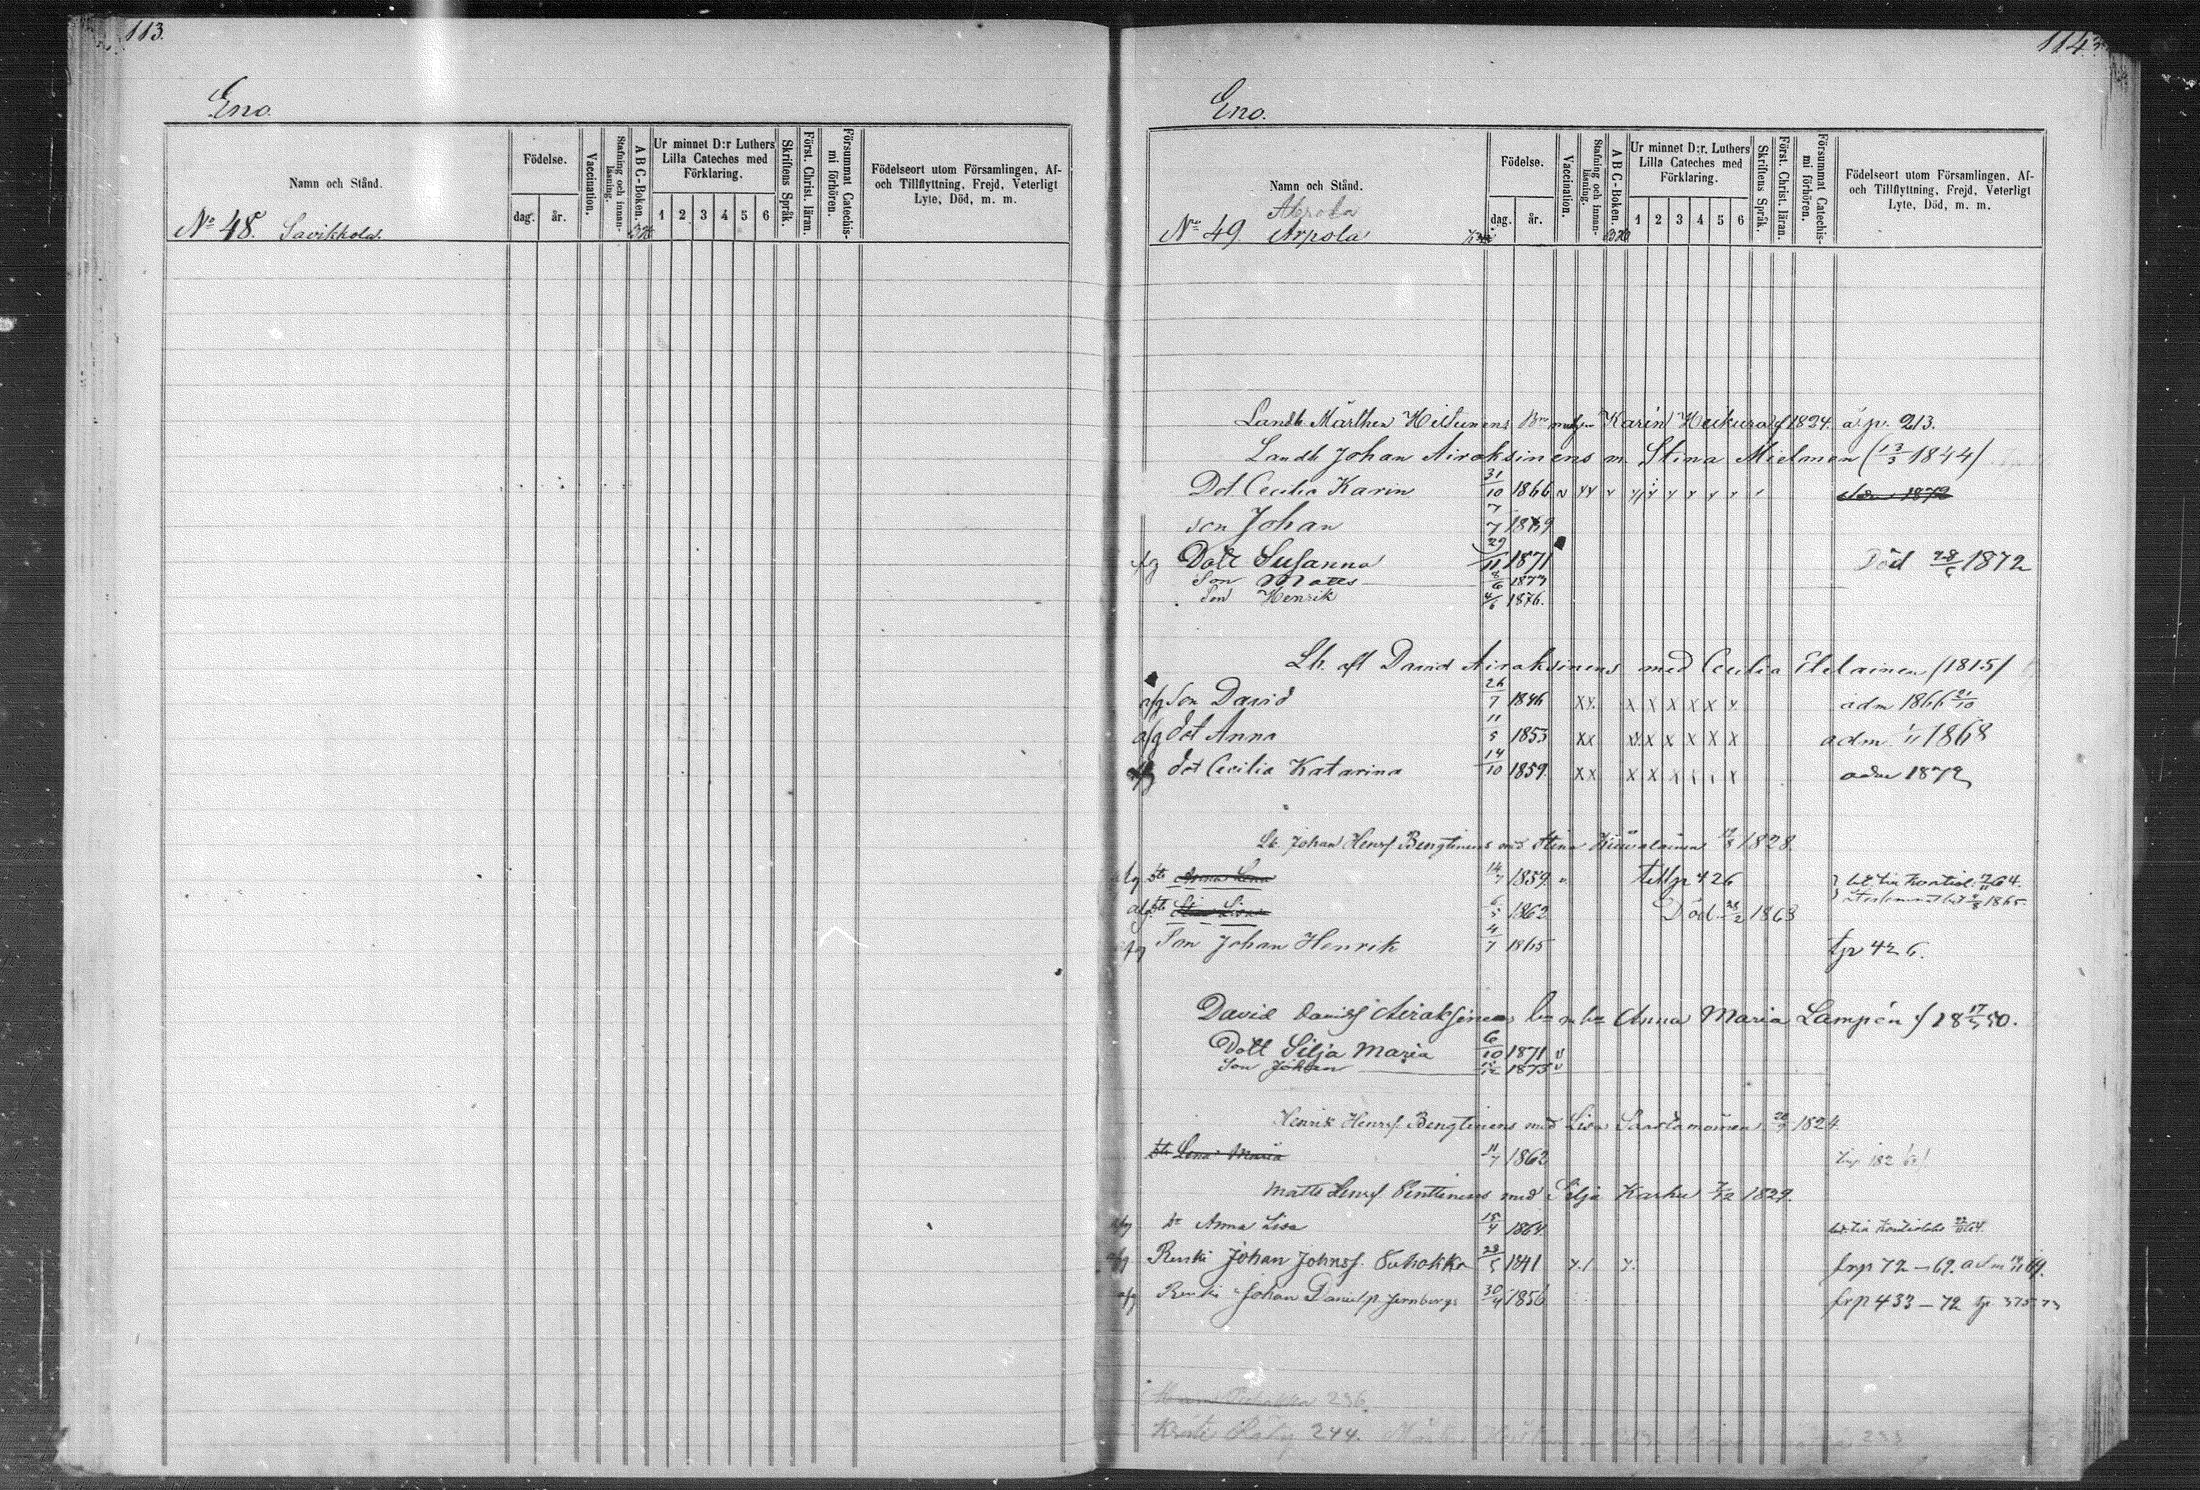 113.
Eno.
Namn och Stånd.
Födelse.
dag. år.
Vaccination.
Stafning och innanläsning.
A B C-Boken.
Ur minnet D:r Luthers Lilla Cateches med Förklaring.
1 2 3 4 5 6
Skriftens Språk.
Först. Christ. läran.
Försummat Catechismi förhören.
Födelseort utom Församlingen, Af- och Tillflyttning, Frejd, Veterligt Lyte, Död, m. m.
No 48. Savikkola.
114
Eno.
Namn och Stånd.
Födelse.
dag. år.
Vaccination.
Stafning och innanläsning.
A B C-Boken.
Ur minnet D:r. Luthers Lilla Cateches med Förklaring.
1 2 3 4 5 6
Skriftens Språk.
Först. Christ. läran.
Försummat Catechismi förhören.
Födelseort utom Församlingen, Af- och Tillflyttning, Frejd, Veterligt Lyte, Död, m. m.
No 49 Arpola
Landb Mårthen Hiltunens Karin Heikura f 1824. å p. 213.
Landb Johan Airaksinens m Stina Mielonen (13/3 1844)
Dot. Cecilia Karin 31/10 1866
son Johan 7/7 1869
afg Dott Susanna 29/11 1871 Död 28/6 1872
Son Matts 8/6 1873
Son Henrik 4/6 1876.
Lh. aft David Airaksinens med Cecilia Eteläinen (1815)
afg Son David 26/7 1846 xx x x x x x x adm 1866 21/10
afg dot Anna 11/5 1853 xx x x x x x x adm 1/11 1868
afg dot Cecilia Katarina 14/10 1859. xx x x x x x x adm 1872
Lb. Johan Henrsf Bengtinens med Stina 1828.
afg dtr Anna Lena 14/7 1859. till p 426
afg dtr Stina Lisa 6/5 1862 Död 28/2 1863
afg Son Johan Henrik 4/7 1865 tp 426.
David Davidsf Airaksinen Anna Maria Lampén f 18 17/5 50.
Dott Silja Maria 6/10 1871 v
Son Johan 1873 v
Henrik Henrsf. Bengtinens med Lisa Saastamoinen 1824.
dtr Lena Maria 11/7 1862
Matts Henrsf Penttinens med Silja Karhu 7/12 1829.
afg dr Anna Lisa 15/4 1864.
afg Renki Johan Johnsf. Puhakka 28/5 1841 frp 72 — 69. adm
afg Renki Johan Danielsp Jernbergs 30/4 1856 frp 433 — 72 tp 375 73
236.
244.